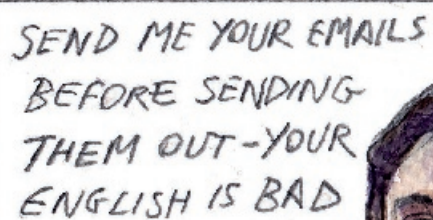 SEND ME YOUR EMAILS
BEFORE SENDING
THEM OUT-YOUR
ENGLISH IS BAD